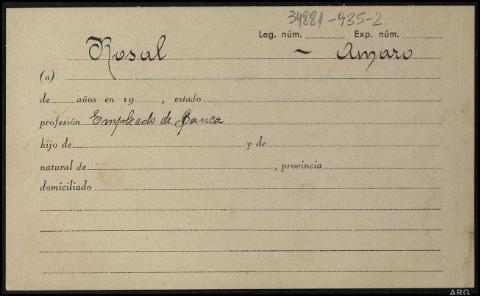 34881-935-2
Leg. núm. Exp. núm.
Rosal - Amaro
(a)
de años en 19 , estado
profesión Empleado de Banca
hijo de y de
natural de , provincia
domiciliado
ARG